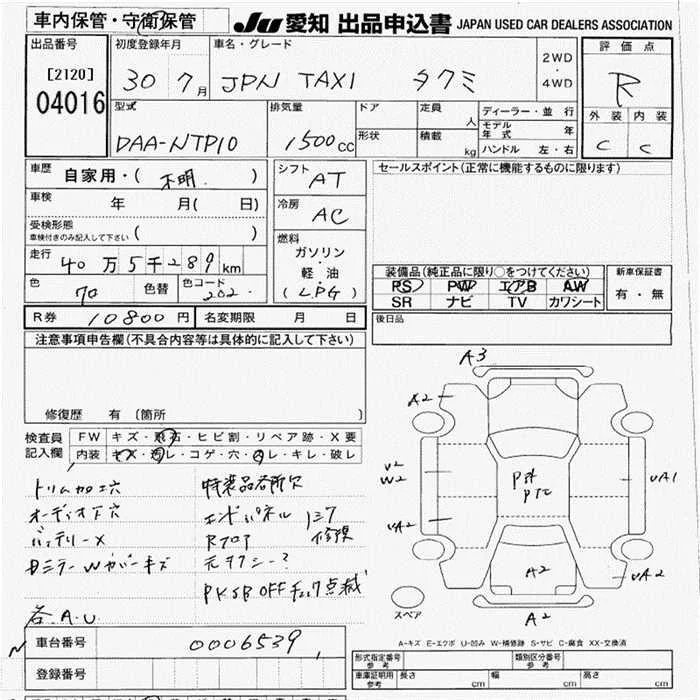 車内保管・守衛保管
JU 愛知 出品申込書 JAPAN USED CAR DEALERS ASSOCIATION
出品番号
[2120]
04016
初度登録年月
30 7月
車名・グレード
JPN TAXI タクミ
2WD
・
4WD
評価点
R
外装 内装
C C
型式
DAA-NTP10
排気量
1500cc
ドア
形状
定員 人
積載 kg
ディーラー・並行
モデル年式 年
ハンドル 左・右
車歴
自家用・( 不明 )
車検 年 月( 日)
受検形態
車検付きのみ記入して下さい ( )
走行
40万5千289km
色
70 色替
色コード
202
シフト
AT
冷房
AC
燃料
ガソリン
・
軽油
(LPG)
セールスポイント(正常に機能するものに限ります)
装備品(純正品に限り○をつけてください)
PS PW エアB AW
SR ナビ TV カワシート
新車保証書
有・無
後日品
R券 10800円 名変期限 月 日
注意事項申告欄(不具合内容等は具体的に記入して下さい)
修復歴 有 〔箇所 〕
検査員
記入欄
FW キズ・飛石・ヒビ割・リペア跡・X要
内装 キズ・汚レ・コゲ・穴・凹レ・キレ・破レ
トリム加工穴
オーディオ下穴
バッテリーX
ミラーWカバーキズ
各A.U
特装品各所欠
エンドパネル
Rフロア
修復
元タクシー?
PKSB OFF チェック点滅
A3
A2
U2
W2
UA2
UA1
UA2
A2
A2
スペア
A-キズ E-エクボ U-凹み W-補修跡 S-サビ C-腐食 XX-交換済
車台番号 0006539
登録番号
形式指定番号
参考
類別区分番号
参考
車庫証明用
参考
長さ cm 幅 cm 高さ cm